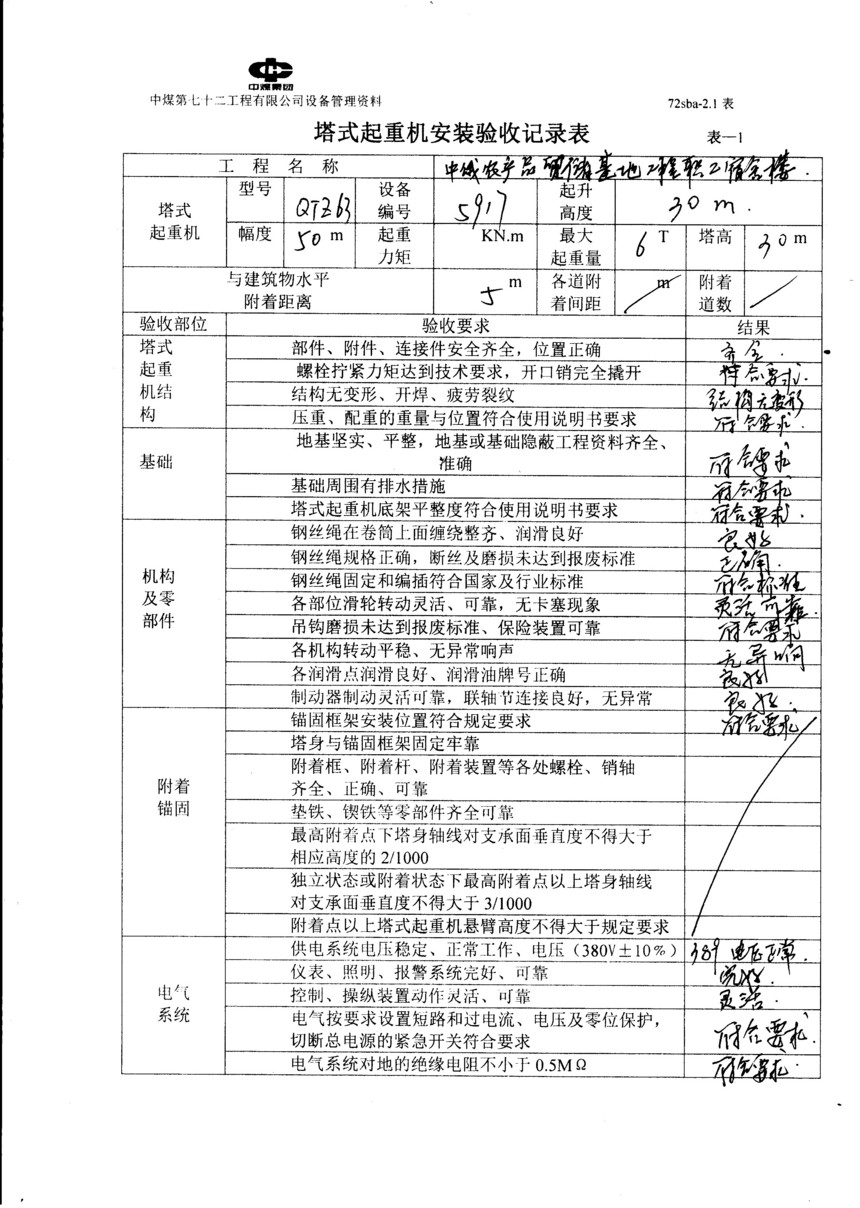 中煤集团
中煤第七十二工程有限公司设备管理资料 72sba-2.1 表
塔式起重机安装验收记录表 表—1
工 程 名 称 农产品 基地工程职工宿舍楼
塔式起重机 型号 QTZ63 设备编号 5917 起升高度 30 m .
幅度 50 m 起重力矩 KN.m 最大起重量 6 T 塔高 30 m
与建筑物水平附着距离 5 m 各道附着间距 m 附着道数
验收部位 验收要求 结果
塔式起重机结构 部件、附件、连接件安全齐全，位置正确 齐全.
螺栓拧紧力矩达到技术要求，开口销完全撬开 符合要求.
结构无变形、开焊、疲劳裂纹 结构无变形
压重、配重的重量与位置符合使用说明书要求 符合要求.
基础 地基坚实、平整，地基或基础隐蔽工程资料齐全、
准确 符合要求
基础周围有排水措施 符合要求
塔式起重机底架平整度符合使用说明书要求 符合要求.
机构及零部件 钢丝绳在卷筒上面缠绕整齐、润滑良好 良好
钢丝绳规格正确，断丝及磨损未达到报废标准 正确.
钢丝绳固定和编插符合国家及行业标准 符合标准
各部位滑轮转动灵活、可靠，无卡塞现象 灵活可靠.
吊钩磨损未达到报废标准、保险装置可靠 符合要求
各机构转动平稳、无异常响声 无异响
各润滑点润滑良好、润滑油牌号正确 良好
制动器制动灵活可靠，联轴节连接良好，无异常 良好.
附着锚固 锚固框架安装位置符合规定要求 符合要求
塔身与锚固框架固定牢靠
附着框、附着杆、附着装置等各处螺栓、销轴
齐全、正确、可靠
垫铁、锲铁等零部件齐全可靠
最高附着点下塔身轴线对支承面垂直度不得大于
相应高度的 2/1000
独立状态或附着状态下最高附着点以上塔身轴线
对支承面垂直度不得大于 3/1000
附着点以上塔式起重机悬臂高度不得大于规定要求
电气系统 供电系统电压稳定、正常工作、电压（380V±10%） 389 电压正常.
仪表、照明、报警系统完好、可靠 完好.
控制、操纵装置动作灵活、可靠 灵活.
电气按要求设置短路和过电流、电压及零位保护，
切断总电源的紧急开关符合要求 符合要求.
电气系统对地的绝缘电阻不小于 0.5MΩ 符合要求.